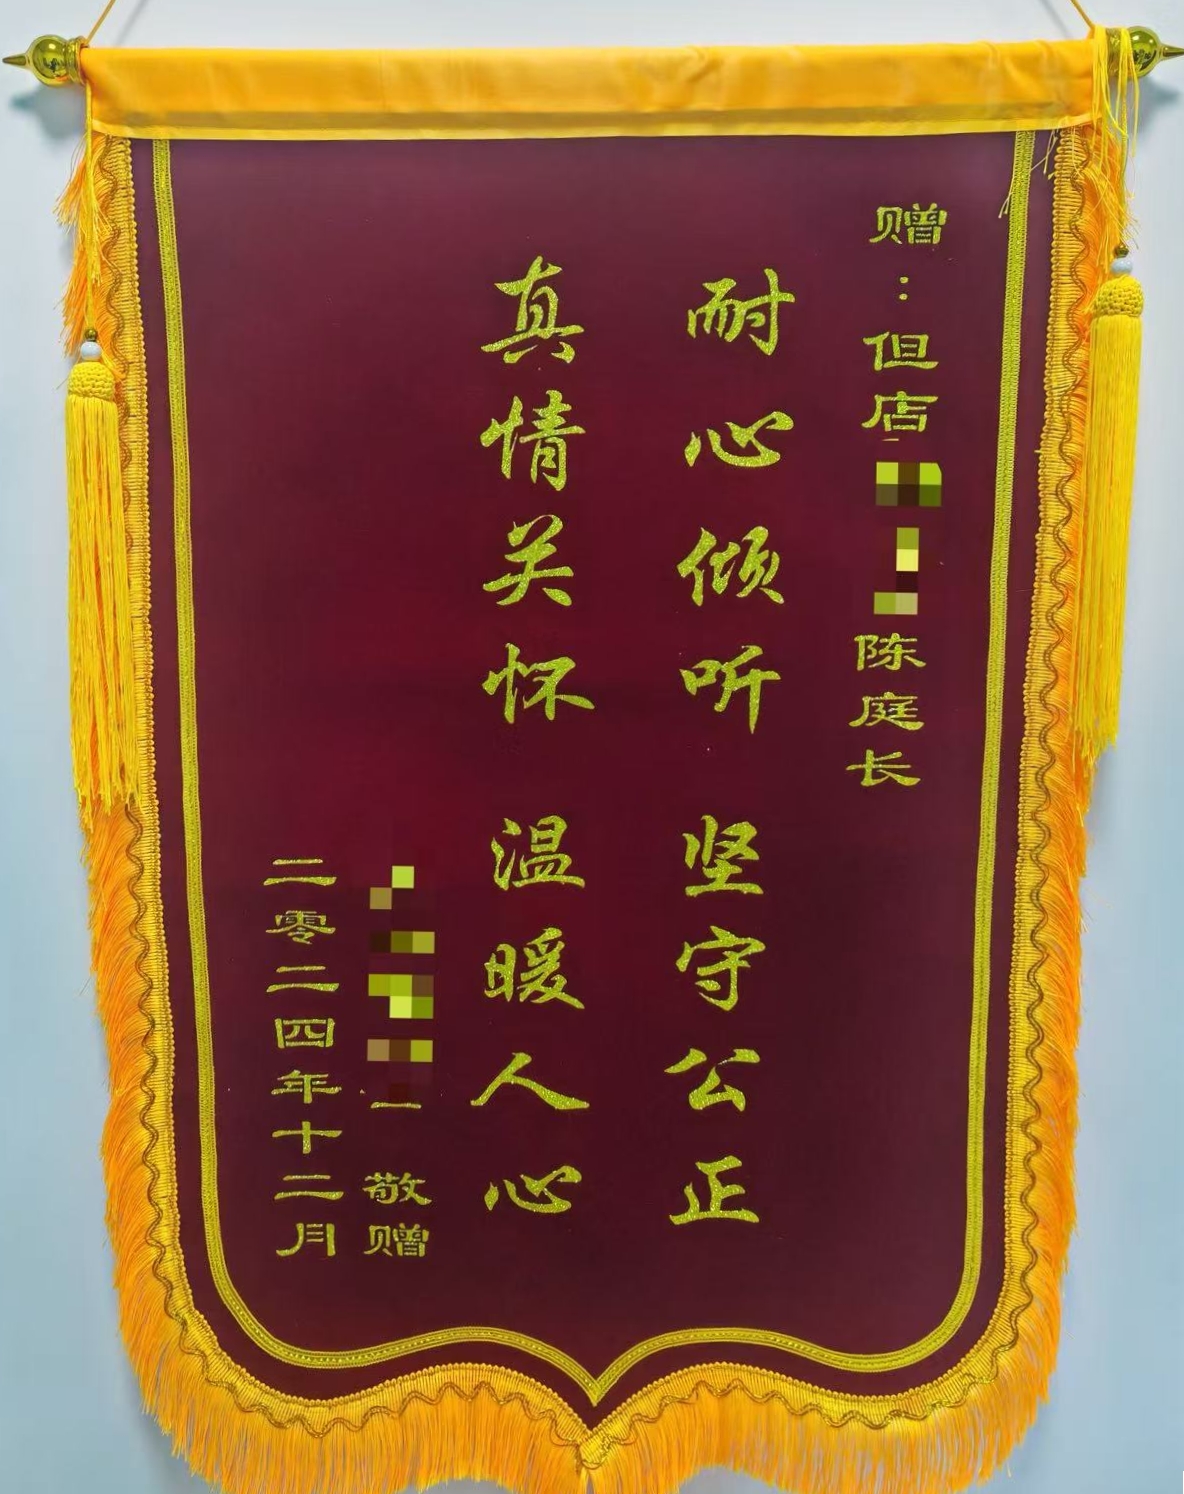 赠：但店陈庭长
耐心倾听 坚守公正
真情关怀 温暖人心
敬赠
二零二四年十二月